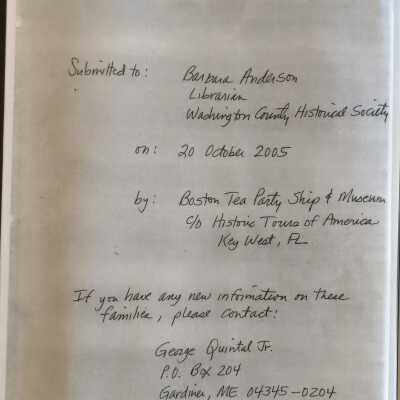 Submitted to: Barbara Anderson
Librarian
Washington County Historical Society
on: 20 October 2005
by: Boston Tea Party Ship & Museum
c/o Historic Tours of America
Key West, FL
If you have any new information on these
families, please contact:
George Quintal Jr.
P.O. Box 204
Gardiner, ME 04345-0204